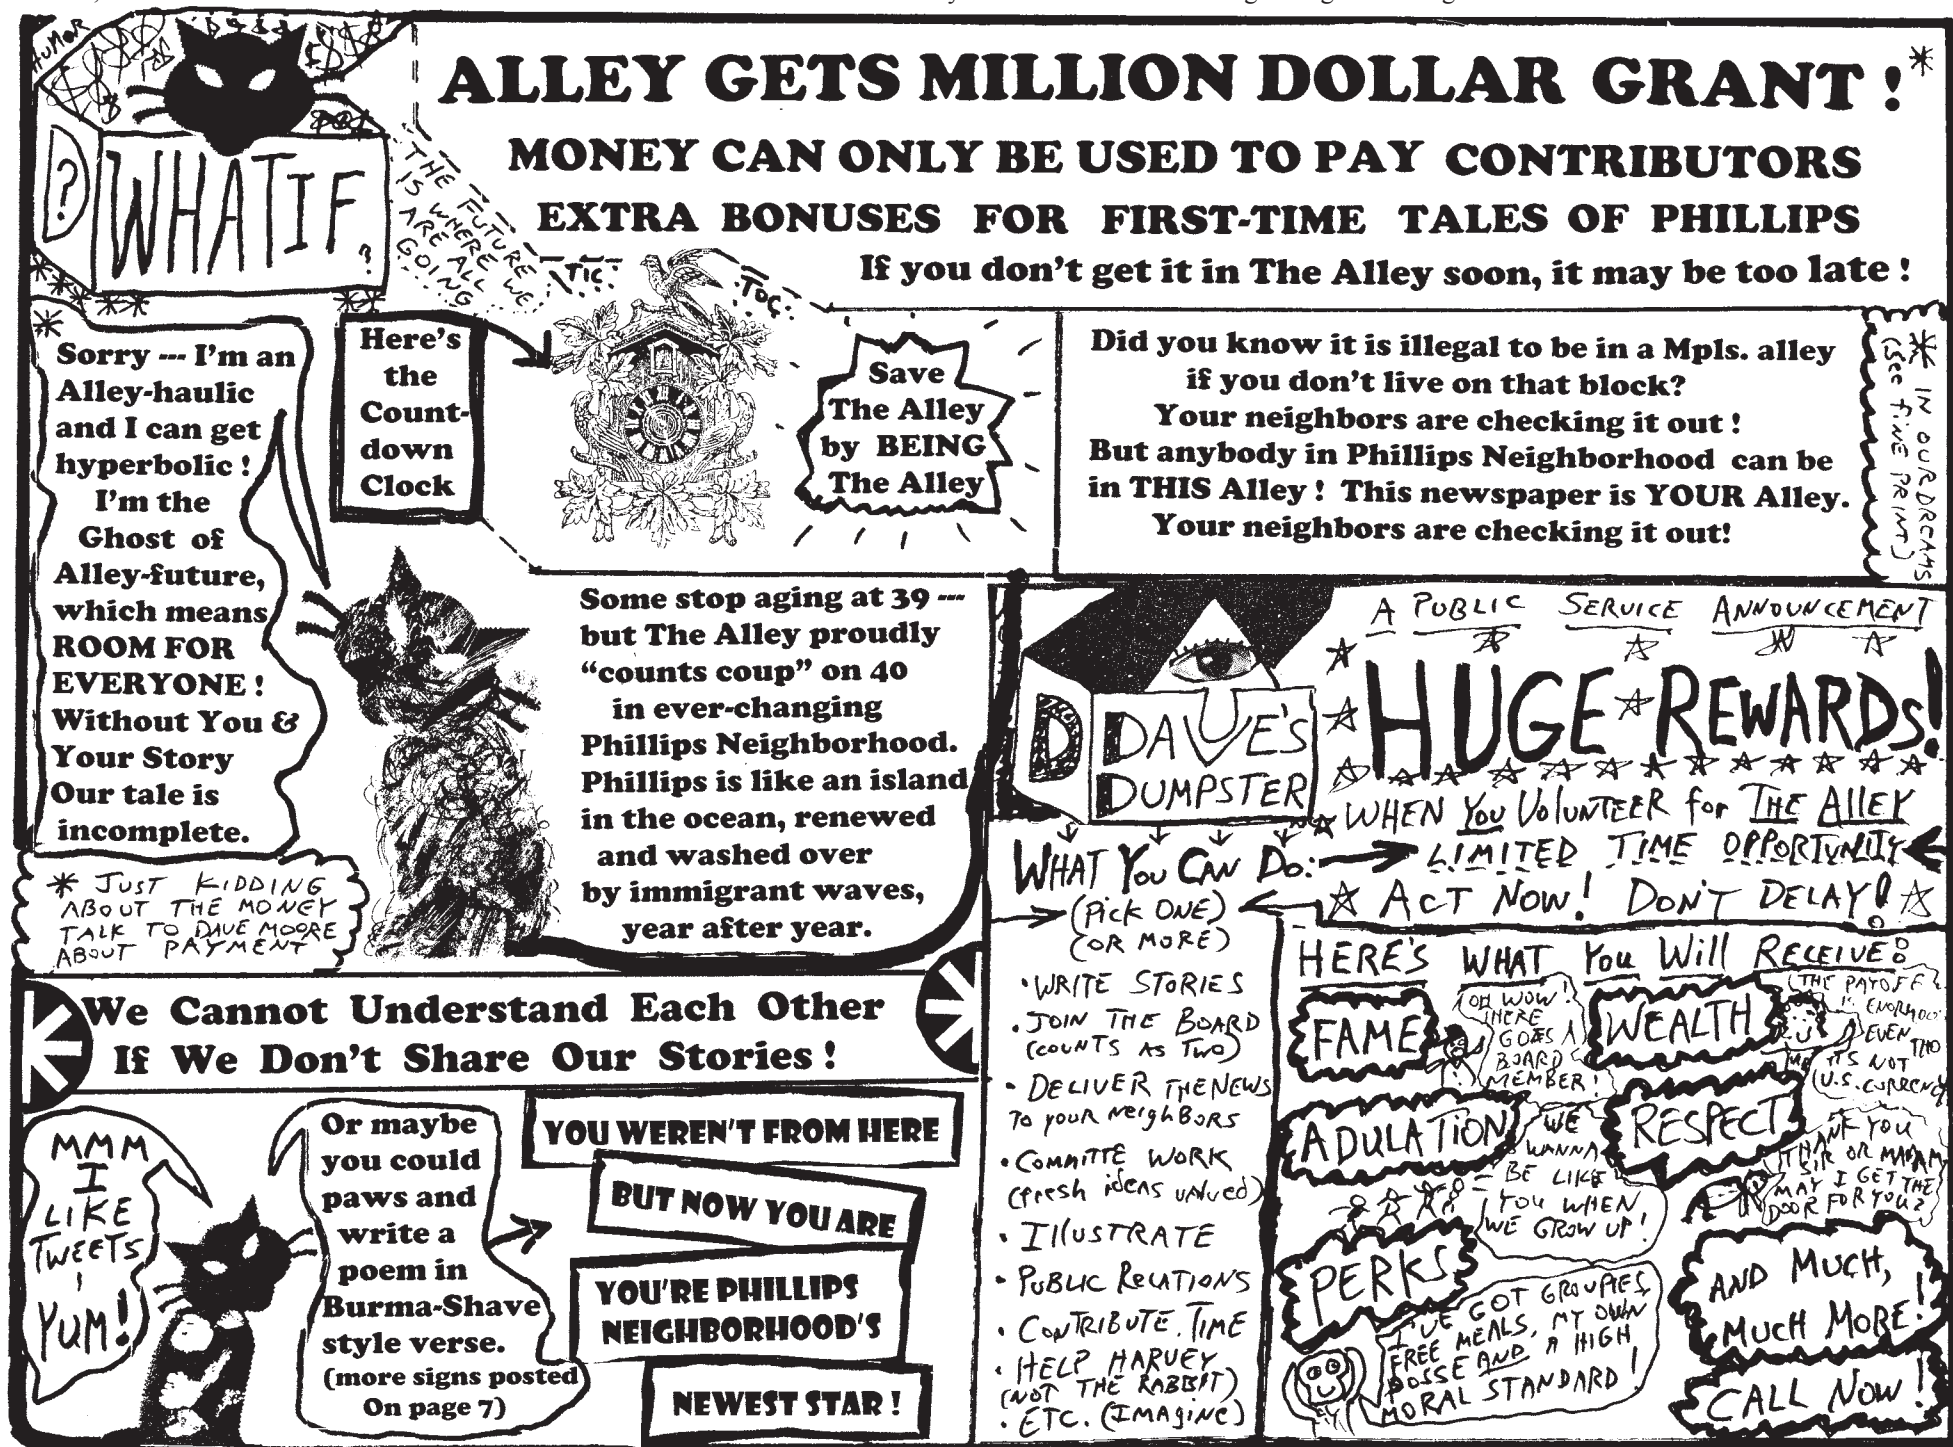 HUMOR
?
WHAT IF
?
THE FUTURE
IS WHERE WE
ARE ALL
GOING
ALLEY GETS MILLION DOLLAR GRANT ! *
MONEY CAN ONLY BE USED TO PAY CONTRIBUTORS
EXTRA BONUSES FOR FIRST-TIME TALES OF PHILLIPS
If you don't get it in The Alley soon, it may be too late !
TIC
TOC
Sorry --- I'm an
Alley-haulic
and I can get
hyperbolic !
I'm the
Ghost of
Alley-future,
which means
ROOM FOR
EVERYONE !
Without You &
Your Story
Our tale is
incomplete.
Here's
the
Count-
down
Clock
Save
The Alley
by BEING
The Alley
Did you know it is illegal to be in a Mpls. alley
if you don't live on that block?
Your neighbors are checking it out !
But anybody in Phillips Neighborhood can be
in THIS Alley ! This newspaper is YOUR Alley.
Your neighbors are checking it out!
* IN OUR DREAMS
(SEE FINE PRINT)
* JUST KIDDING
ABOUT THE MONEY
TALK TO DAVE MOORE
ABOUT PAYMENT
Some stop aging at 39 ---
but The Alley proudly
“counts coup” on 40
in ever-changing
Phillips Neighborhood.
Phillips is like an island
in the ocean, renewed
and washed over
by immigrant waves,
year after year.
We Cannot Understand Each Other
If We Don't Share Our Stories !
MMM
I
LIKE
TWEETS
!
YUM!
Or maybe
you could
paws and
write a
poem in
Burma-Shave
style verse.
(more signs posted
On page 7)
YOU WEREN'T FROM HERE
BUT NOW YOU ARE
YOU'RE PHILLIPS
NEIGHBORHOOD'S
NEWEST STAR !
D
DAVE'S
DUMPSTER
A PUBLIC SERVICE ANNOUNCEMENT
HUGE REWARDS!
WHEN YOU VOLUNTEER for THE ALLEY
LIMITED TIME OPPORTUNITY
ACT NOW! DON'T DELAY!
WHAT YOU CAN DO:
(PICK ONE)
(OR MORE)
• WRITE STORIES
• JOIN THE BOARD
(COUNTS AS TWO)
• DELIVER THE NEWS
TO YOUR NEIGHBORS
• COMMITTE WORK
(fresh ideas valued)
• ILLUSTRATE
• PUBLIC RELATIONS
• CONTRIBUTE TIME
• HELP HARVEY
(NOT THE RABBIT)
• ETC. (IMAGINE)
HERE'S WHAT YOU WILL RECEIVE:
FAME
OH WOW!
THERE
GOES A
BOARD
MEMBER!
WEALTH
(THE PAYOFF
IS ENORMOUS
EVEN THO
IT'S NOT
U.S. CURRENCY
ADULATION
WE
WANNA
BE LIKE
YOU WHEN
WE GROW UP!
RESPECT
THANK YOU
SIR OR MADAM
MAY I GET THE
DOOR FOR YOU?
PERKS
I'VE GOT GROUPIES,
FREE MEALS, MY OWN
POSSE AND A HIGH
MORAL STANDARD!
AND MUCH,
MUCH MORE!
CALL NOW!